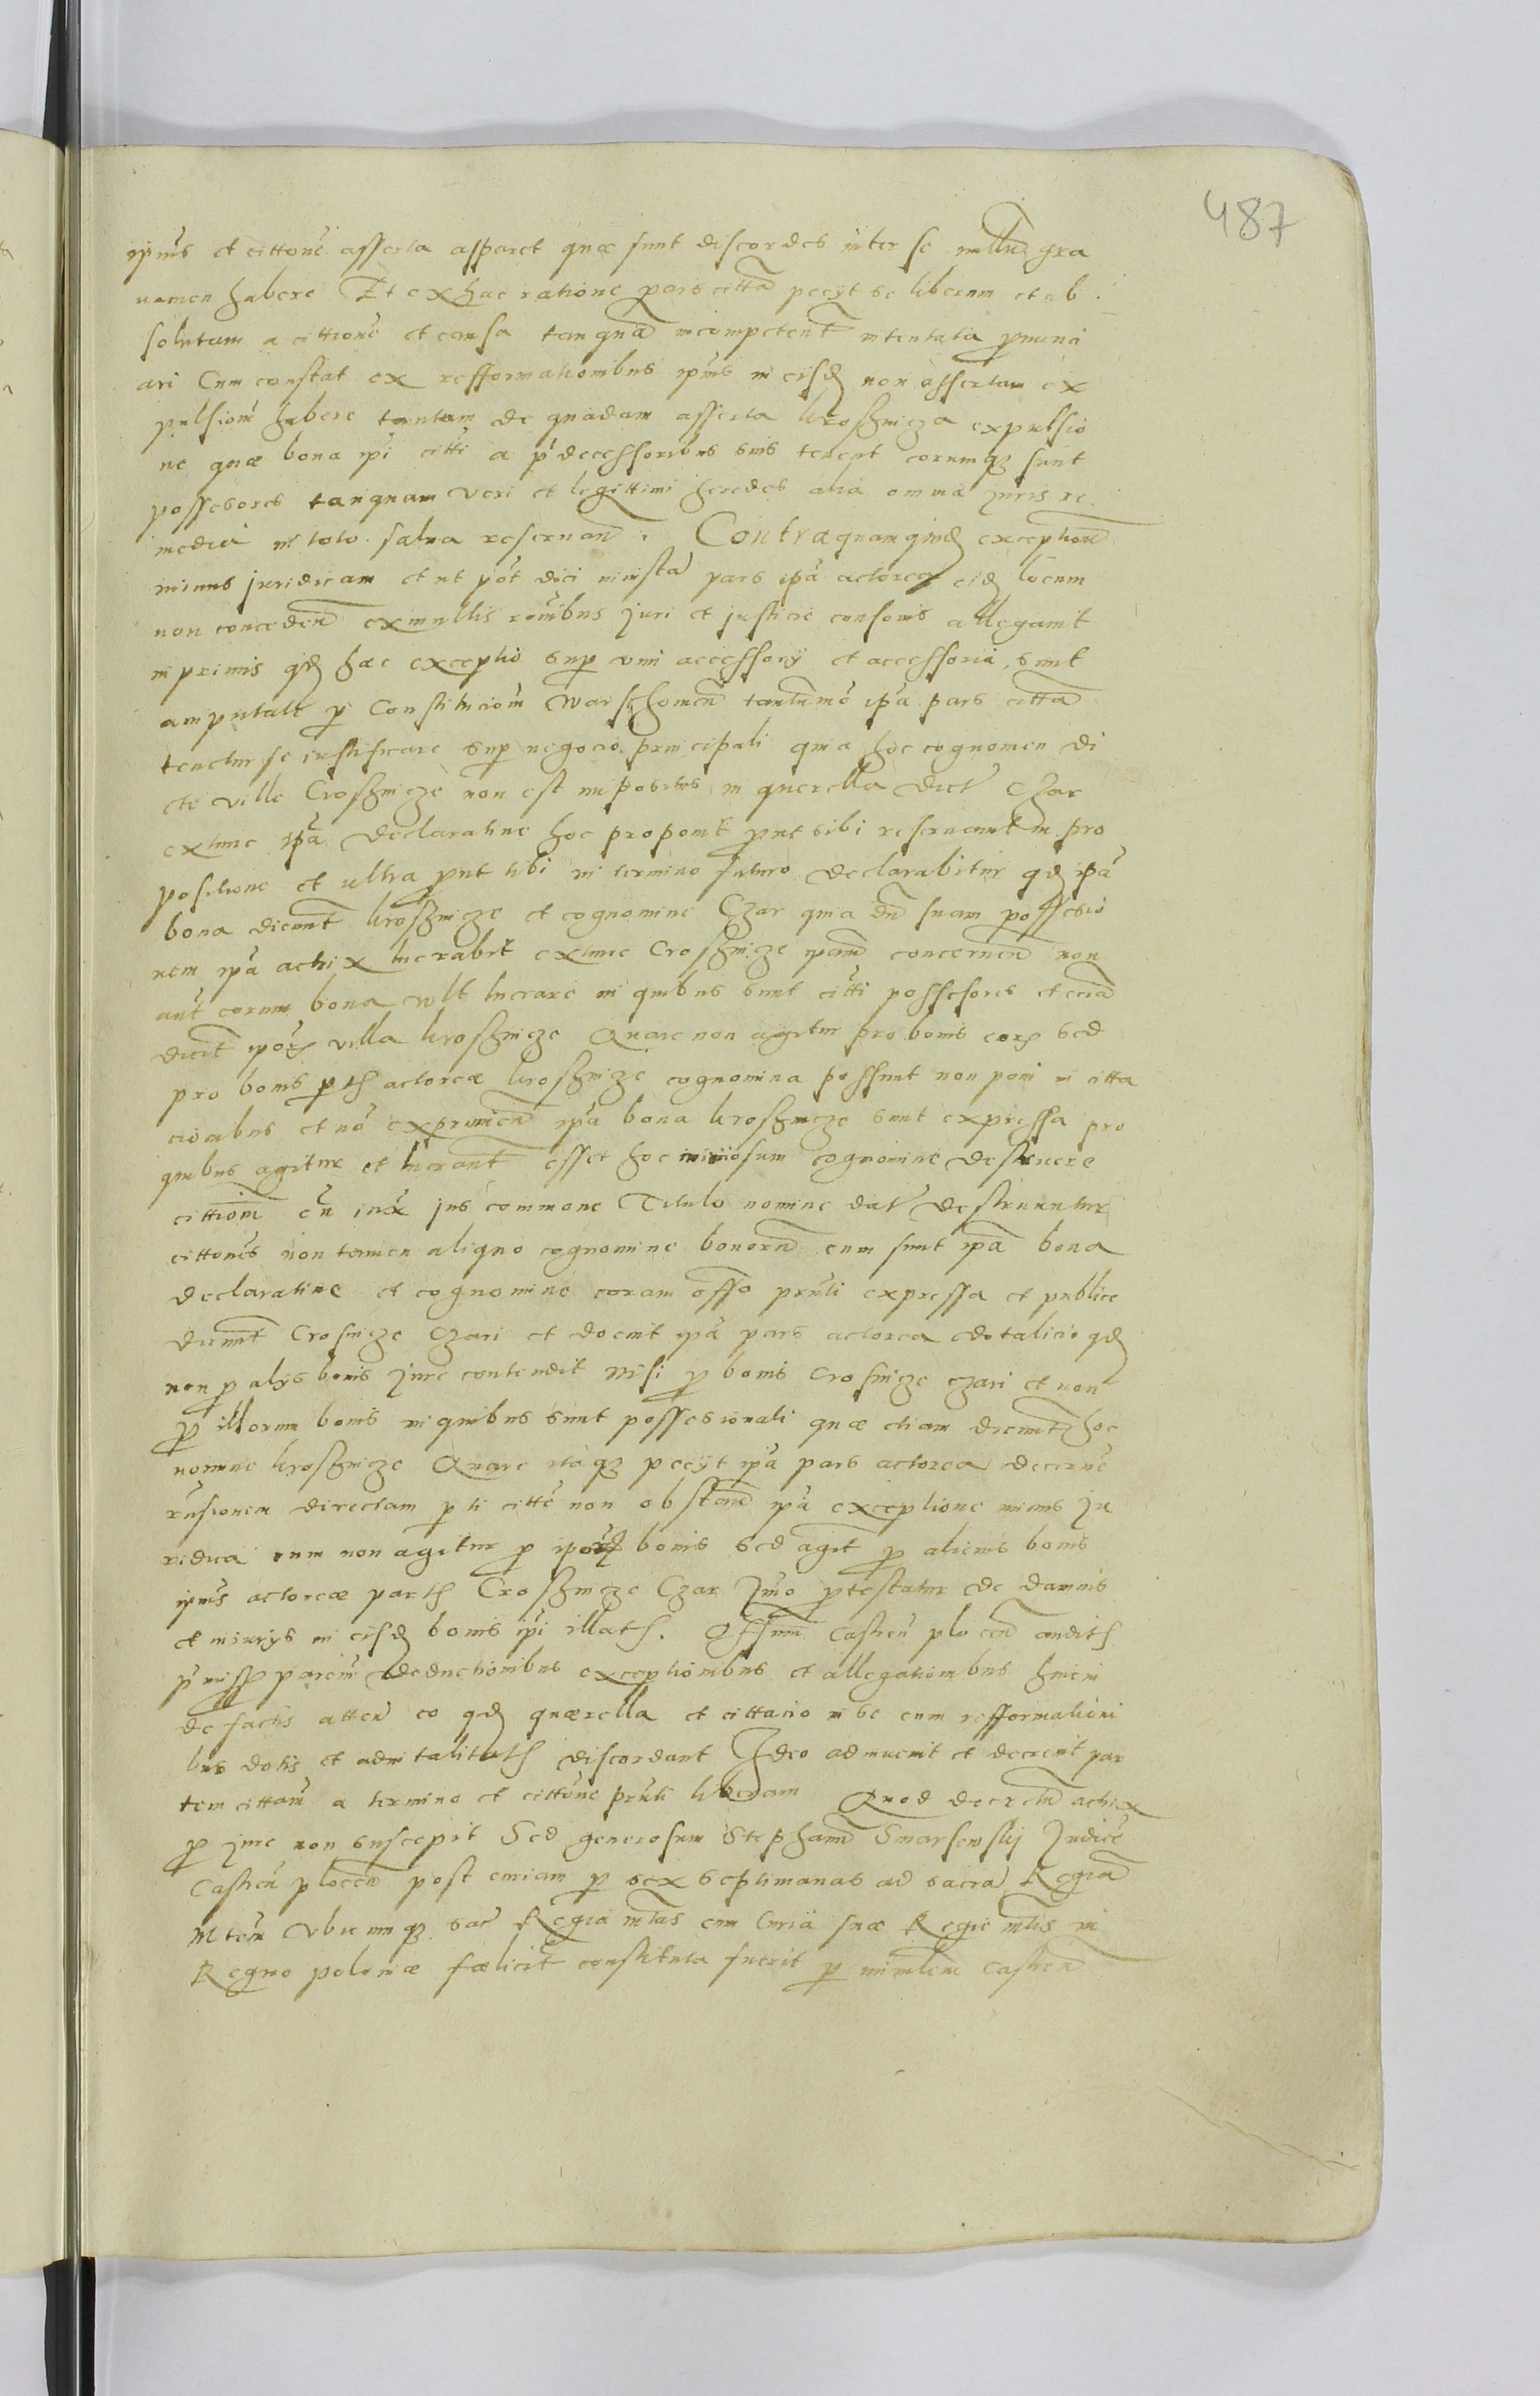 487
ipius et cittone asserta asparet quæ sunt discordes inter se nullu gra
uamen habere Et ex hac ratione pars citta pecÿt se liberum et ab
solutum a cittione et causa tanquā incompetent intentata pnunci
ari Cum constat ex refformationibus ipius in eisd non assertam ex
pulsiom habere tantum de quadam asserta kroſznicza expulsio
ne quæ bona ipi citti a pdecessoribus suis tenent eorumqz sunt
possesores tanquam veri et legittimi heredes alia omnia juris re
media in toto salua reseruan. Contra quamquid exceptionē
minus juridicam et ut pot dici iniusta pars ipa actorea eid locum
non conceden ex multis ronibus juri et justicie consonis allegauit
in primis qd hæc exceptio sup vim accessorÿ et accessoria sunt
amputate p Constitucionē Warschouien tantumo ipa pars citta
tenetur se iustificare sup negocio principali quia hoc cognomen di
cte ville Crosznicze non est impositus in querella dict Czar
extunc ipa declaratiue hoc proponit put sibi reseruauit in pro
positione et ultra put tibi in termino futuro declarabitur qd ipa
bona dicunt kroſznicze et cognomine Czar quia dn suam possesio
nem ipa actrix lucrabit extunc Croſznicze ipam concernen non
aut eorum bona vlt lucrare in quibus sunt citti possesores et ecia
dicit ipor villa kroſznicze Quare non agitur pro bonis eor sed
pro bonis ptis actoreæ kroſznicze cognomina possunt non poni in citta
cionibus et nō exprimen ipa bona kroſznicze sunt expressa pro
quibus agitur et lucrant esset hoc iniuriosum cognomine destruere
cittionē cū iux jus commone Titulo nomine dat destruuntur
cittones non tamen aliquo cognomine bonoru cum sunt ipa bona
declaratiue et cognomine coram offo pnti expressa et publice
dicunt Crosnicze Czari et docuit ipa pars actorea dotalicio qd
non p alÿs bonis jure contendit nisi p bonis Crosnicze czari et non
p illorum bonis in quibus sunt possesionati quæ etiam dicunt hoc
nomine kroſznicze Quare itaqz pecÿt ipa pars actorea decerne
rusionem directam pti citte non obstan ipa exceptione minus ju
ridica cum non agitur p ipor bonis sed agit p alienis bonis
ipius actoreæ partis Croſznicze Czar Imo ptestatur de damnis
et iniurÿs in eisd bonis ipi illatis. Offium Castren plocen auditis
pmissis parciu deductionibus exceptionibus et allegationibus hincin
de factis atten eo qd quærella et cittacio in se cum refformationi
bus dotis et aduitalitatis discordant Ideo adinuenit et decreuit par
tem cittam a termino et cittone pnti liberam Quod decretu actrix
p jure non suscepit Sed generosum Stephanū Smarsewskÿ Judicē
Castren plocen post curiam p sex septimanas ad sacrā Regiā
Mtem vbicumqz sac Regia mtas cum Curia suæ Regie mtis in
Regno poloniæ fœlicit constituta fuerit p ministerm Castren